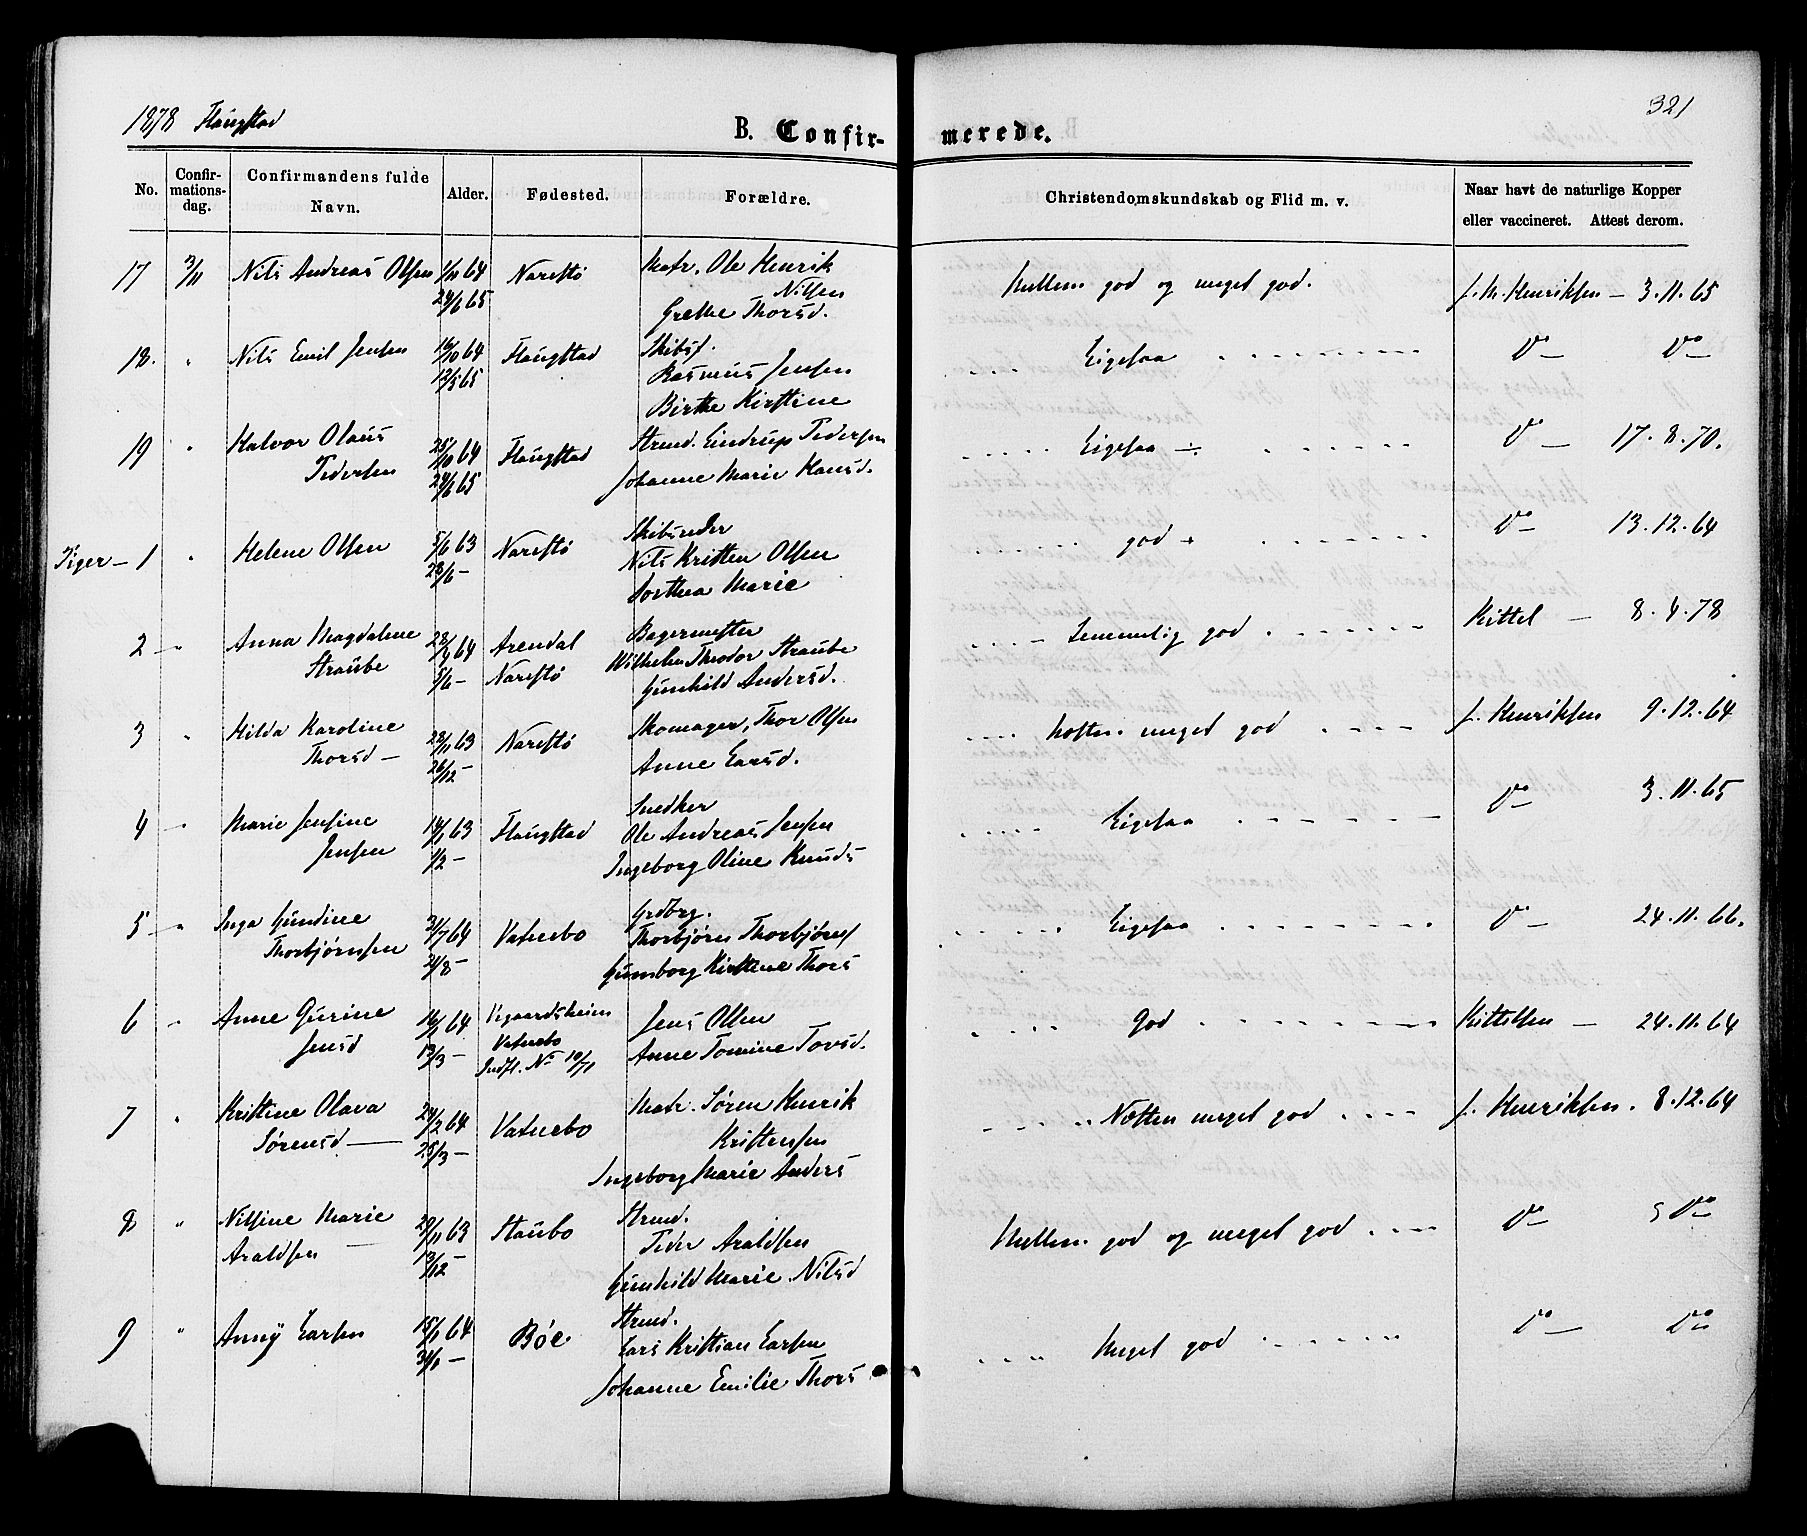 1878 Flangstad
321
B. Confir- merede.
No.
Confir-
mations-
dag.
Confirmandens fulde
Navn.
Alder.
Fødested.
Forældre.
Christendomskundskab og Flid m. v.
Naar havt de naturlige Kopper
eller vaccineret. Attest derom.
17 3/11 Nils Andreas Olsen 1/11 64 Narestö Matr. Ole Henrik Mellem god og meget god. J. M. Henriksen – 3.11.65
24/6 65 Nilsen
Grethe Thorsd.
18. " Nils Emil Jensen 16/10 64 Flangstad Skibsf. Ligesaa Do – Do
12/5 65 Rasmus Jensen
Birthe Kirstine
19 " Halvor Olaus 25/10 64 Flangstad Strmd. Eindrup Pedersen Ligesaa ÷ Do – 17.8.70.
Pedersen 24/6 65 Johanne Marie Hansd.
Piger – 1 " Helene Olsen 5/6 63 Narestö Skibsreder god + Do – 13.12.64
28/6 – Nils Kristen Olsen
Dorthea Marie
2 – " Anna Magdalene 28/4 64 Arendal Bagermester Temmelig god Kittel – 8.4.78
Straube 5/6 – Narestö Wilhelm Theodor Straube
Gunhild Andersd.
3 " Hilda Karoline 28/11 63 Narestö Skomager, Thor Olsen Næsten meget god J. Henriksen 9.12.64
Thorsd – 26/12 – Anne Larsd.
4 – " Marie Jensine 14/1 63 Flangstad Snedker Ligesaa Do – 3.11.65
Jensen 1/2 – Ole Andreas Jensen
Ingeborg Oline Knuds
5 – " Inga Gundine 31/7 64 Vatnebo Grdbrg. Ligesaa Do – 24.11.66.
Thorbjørnsen 21/8 – Thorbjørn Thorbjørns
Gunborg Kirstine Thors
6 " Anne Gurine 16/2 64 Vegaardsheien Jens Olsen God Kittelsen – 24.11.64
Jensd 13/3 – Vatnebo Anne Tomine Tovsd.
Indfl. No 10/71
7 " Kristine Olava 24/2 64 Vatnebo Matr. Søren Henrik Næsten meget god J. Henriksen. 8.12.64
Sørensd – 25/3 – Kristensen
Ingeborg Marie Anders
8 " Nilsine Marie 29/11 63 Staubo Strmd. Mellem god og meget god Do – Do
Araldsen 13/12 – Peder Araldsen
Gunhild Marie Nilsd
9 " Anny Larsen 15/1 64 Bøe Strmd. Meget god Do – Do
31/1 – Lars Kristian Larsen
Johanne Emilie Thors